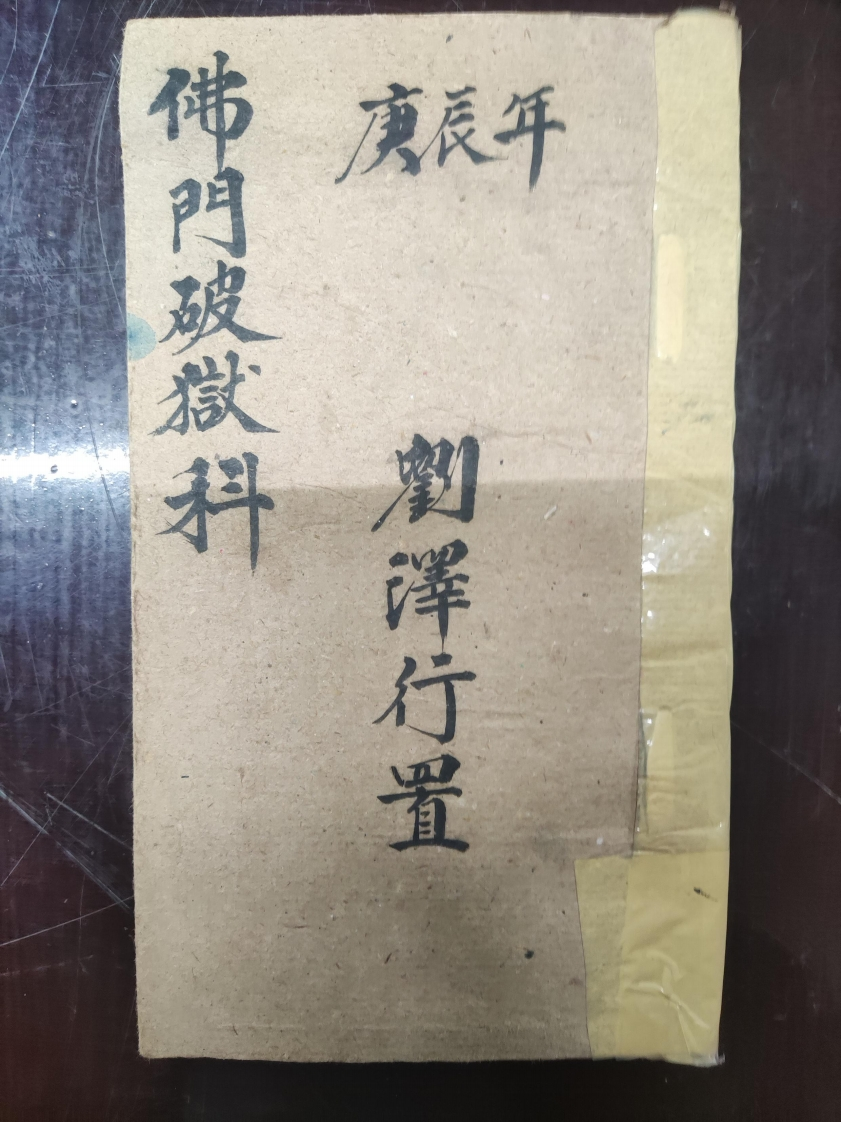 庚辰年
劉澤行置
佛門破獄科